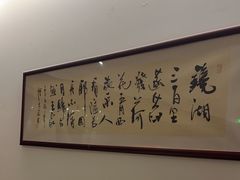 鏡湖
三百里
菡萏
發荷
花五月西
施采人
看隘若
耶回
舟不待
月歸去
越王家